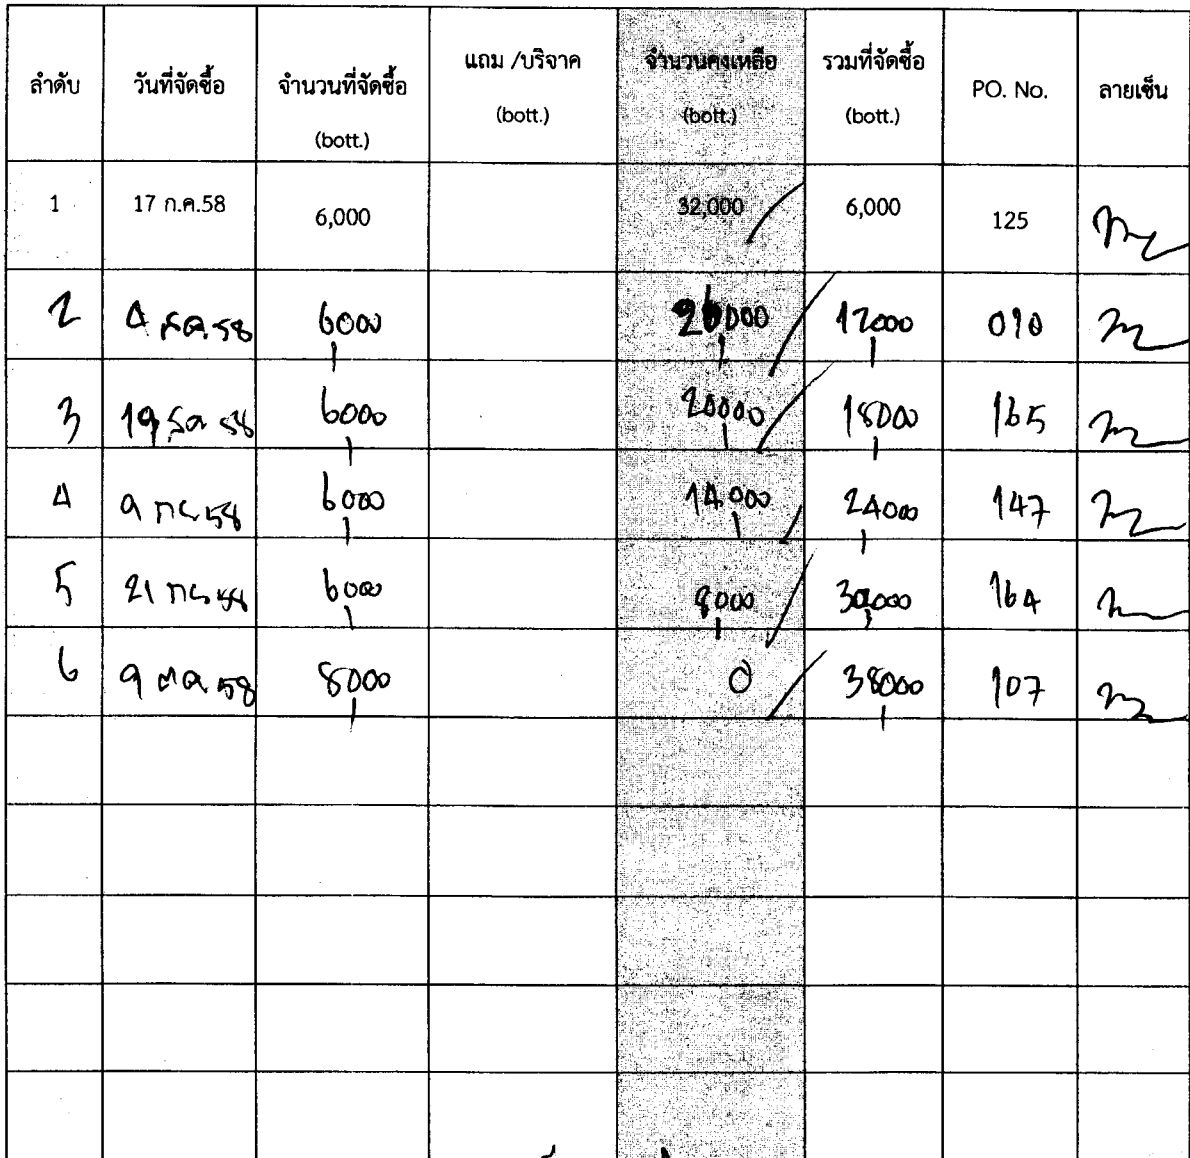 ลำดับ วันที่จัดซื้อ จำนวนที่จัดซื้อ (bott.) แถม /บริจาค (bott.) จำนวนคงเหลือ (bott.) รวมที่จัดซื้อ (bott.) PO. No. ลายเซ็น
1 17 ก.ค.58 6,000 32,000 6,000 125
2 4 ส.ค.58 6,000 26,000 12,000 010
3 19 ส.ค 58 6,000 20,000 18,000 165
4 9 ก.ย.58 6,000 14,000 24,000 147
5 21 ก.ย.58 6,000 8,000 30,000 164
6 9 ต.ค.58 8,000 0 38,000 107